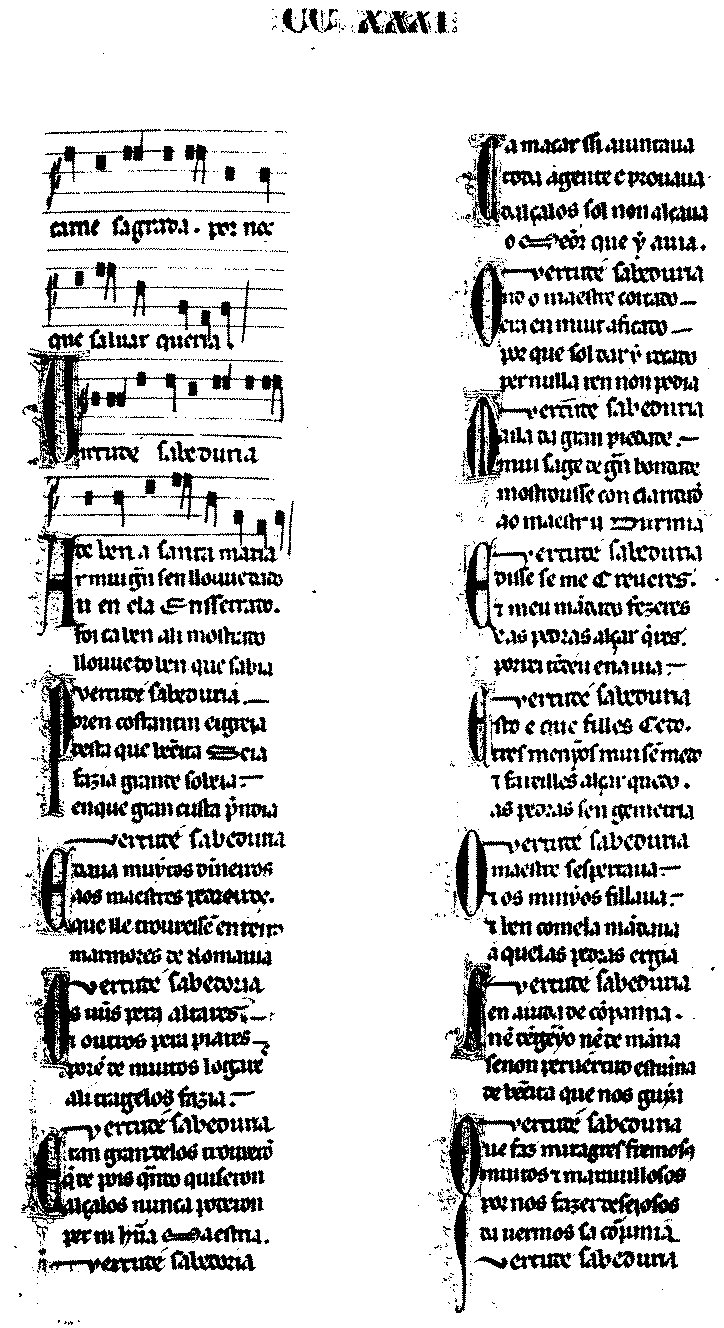 CC XXXI
carne sagrada. por nos
que saluar queria.
Uertude sabeduria
Ate ben a santa maria
r mui gñ sen llouue dado
u en ela Enserrado.
foi ca ben ali mostrado
llouue do ben que sabia
vertude sabeduria
Poren costantin eigreia
desta que bẽeita Seia
fazia grande sobeia
en que gran custa p̃ndia
vertude sabeduria
E daua muytos dineiros
aos maestres pedreiros.
que lle trouxessẽ enteiros
marmores de Romania
vertude sabedoria
Os ũus pera altares
τ outros pera piares
porẽ de muitos logares
ali trage los fazia
vertude sabeduria
E tan grandes los trouxerõ
q̃ de pois q̃ndo quiseron
alçalos nunca poderon
per ni hũa Maestria.
vertude sabedoria
Ca macar ssi aiuntaua
toda a gente e prouaua
dalçalos sol non alçaua
o Meor que ẏ auia.
vertude sabeduria
Ond o maestre coitado
era en mui aficado
por que sol dar ẏ recado
per nulla ren non podia
vertude sabeduria
Mais a da gran piedade.
mui sage de gñ bondade
mostrousse con claridade
ao maestr u Durmia
vertude sabeduria
E disse se me Creueres.
τ meu mãdado fezeres
eas pedras alçar q̃res.
porrei cõseu en a uia
vertude sabeduria
Esto e que filles Cedo.
tres menỹos mui sẽ medo
τ faz eilles alçar quedo.
as pedras sen gemetria
vertude sabeduria
O maestre sespertaua
τ os minỹos fillaua
τ ben com ela mãdaua
aquelas pedras ergia
vertude sabeduria
Sen aiuda de cõpanna.
nẽ dẽgẽyo nẽ de mãna
senon per uertud estrãia
de bẽeita que nos guia
vertude sabeduria
Que faz miragres fremosos
muitos τ marauillosos
por nos fazer deseiosos
da uermos sa cõpania
vertude sabeduria